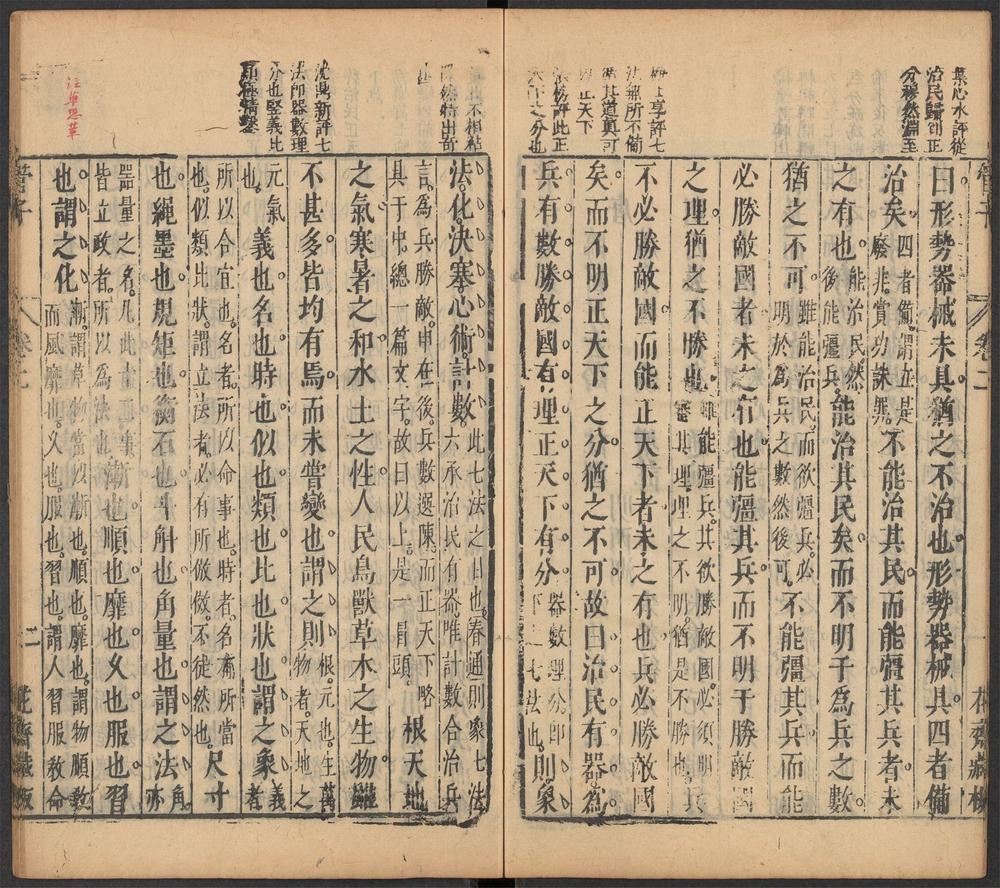 葉心水評從
治民歸到正
分穆然淵至
評七
法無所不備
其道真可
正天下
評此正
天下之分也
花齋藏板
曰形勢器械未具猶之不治也形勢器械具四者備
治矣
四者備謂立是
廢非賞功誅罪
不能治其民而能彊其兵者未
之有也
能治民然
後能彊兵
能治其民矣而不明于為兵之數
猶之不可
雖能治民而欲彊兵必
明於為兵之數然後可
不能彊其兵而能
必勝敵國者未之有也能彊其兵而不明于勝敵國
之理猶之不勝也
雖能彊兵其欲勝敵國必須明
審其理理之不明猶是不勝也
兵
不必勝敵國而能正天下者未之有也兵必勝敵國
矣而不明正天下之分猶之不可故曰治民有器為
兵有數勝敵國有理正天下有分
器數理分即
下之七法也
則象
此不相粘
然特出奇
沈鼎新評七
法即器數理
分也堅義比
類極精鑿
注草恐革
法化決塞心術計數
此七法之目也春通則象七法
六承治民有器唯計數合治兵
言為兵勝敵申在後兵數選陳而正天下略
具于中總一篇文字故曰以上是一冒頭
根天地
之氣寒暑之和水土之性人民鳥獸草木之生物雖
不甚多皆均有焉而未嘗變也謂之則
根元也生萬
物者天地之
元氣
也
義也名也時也似也類也比也狀也謂之象
義
者
所以合宜也名者所以命事也時者名有所當
也似類比狀謂立法者必有所倣倣不徒然也
尺寸
也繩墨也規矩也衡石也斗斛也角量也謂之法
角
亦
器量之名凡此十二事
皆立政者所以為法也
漸也順也靡也久也服也習
也謂之化
漸謂革物當以漸也順也靡也謂物順教
而風靡也久也服也習也謂人習服教命
二
花齋藏板